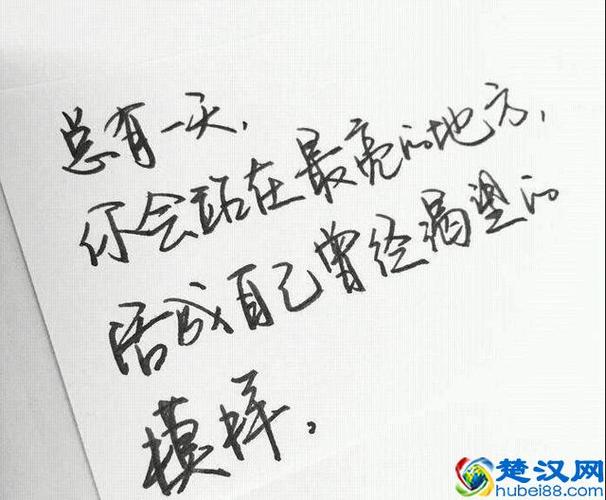 总有一天,
你会站在最亮的地方,
活成自己曾经渴望的
模样。
楚汉网
hubei88.com